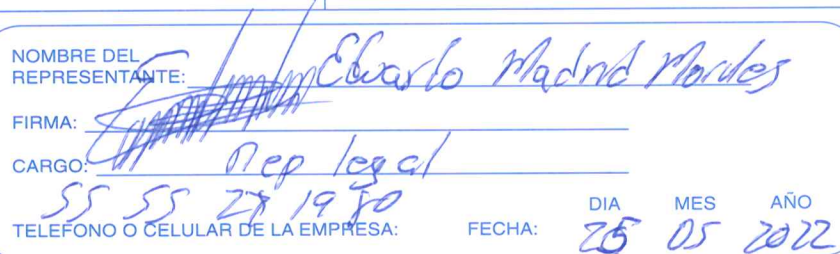 NOMBRE DEL
REPRESENTANTE: Eduardo Madrid Morales
FIRMA:
CARGO: Rep legal
55 55 28 19 80
TELEFONO O CELULAR DE LA EMPRESA: FECHA: DIA MES AÑO
25 05 2022